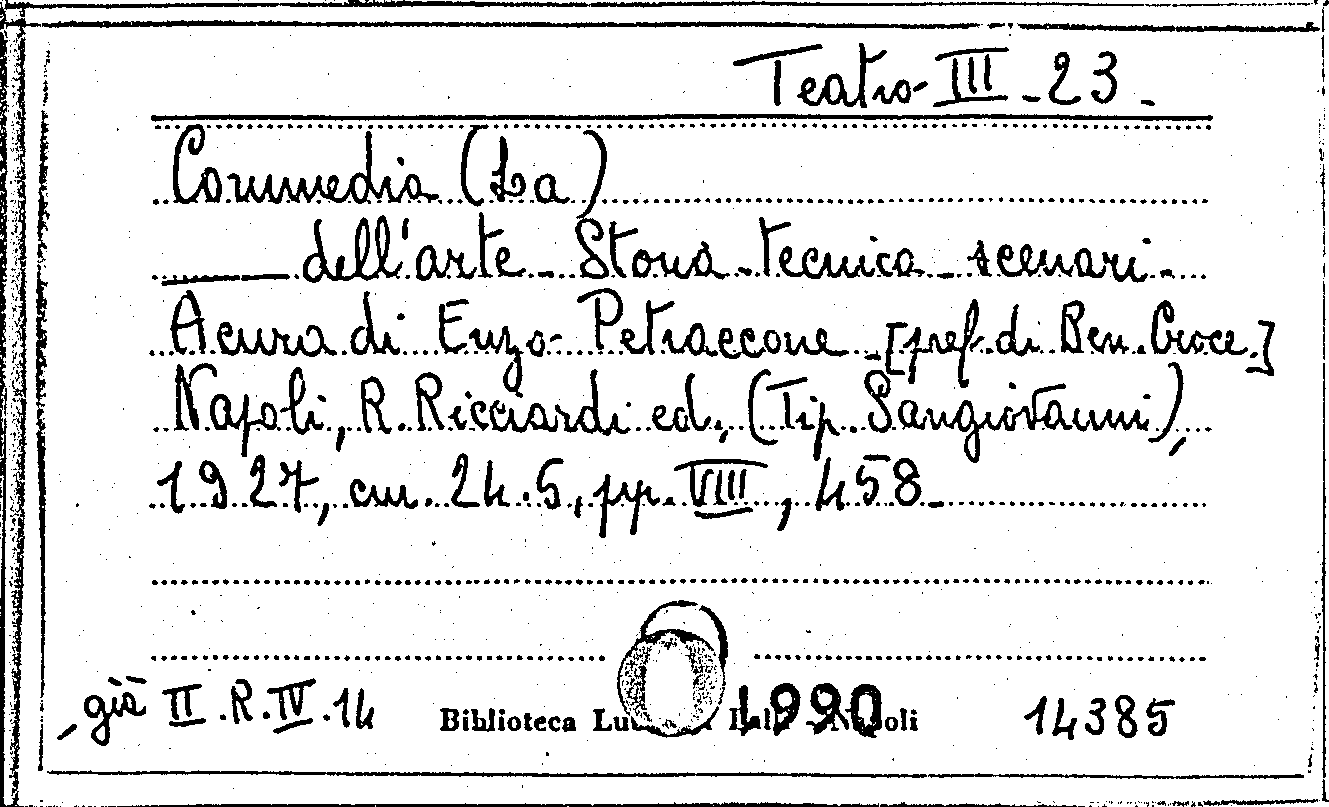 Teatro III - 23 -
Commedia (La)
dell'arte - Storia - tecnica - scenari -
A cura di Enzo Petraccone - [pref. di Ben. Croce.]
Napoli, R. Ricciardi ed., (Tip. Sangiovanni),
1927, cm. 24.5, pp. VIII, 458 -
già II. R. IV. 14 Biblioteca Napoli 1990 14385